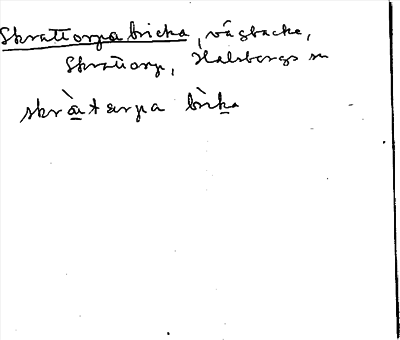 Skrattorpabricka, vägbacke,
Skrattorp, Halsbergs sn
skràtarpa brìka